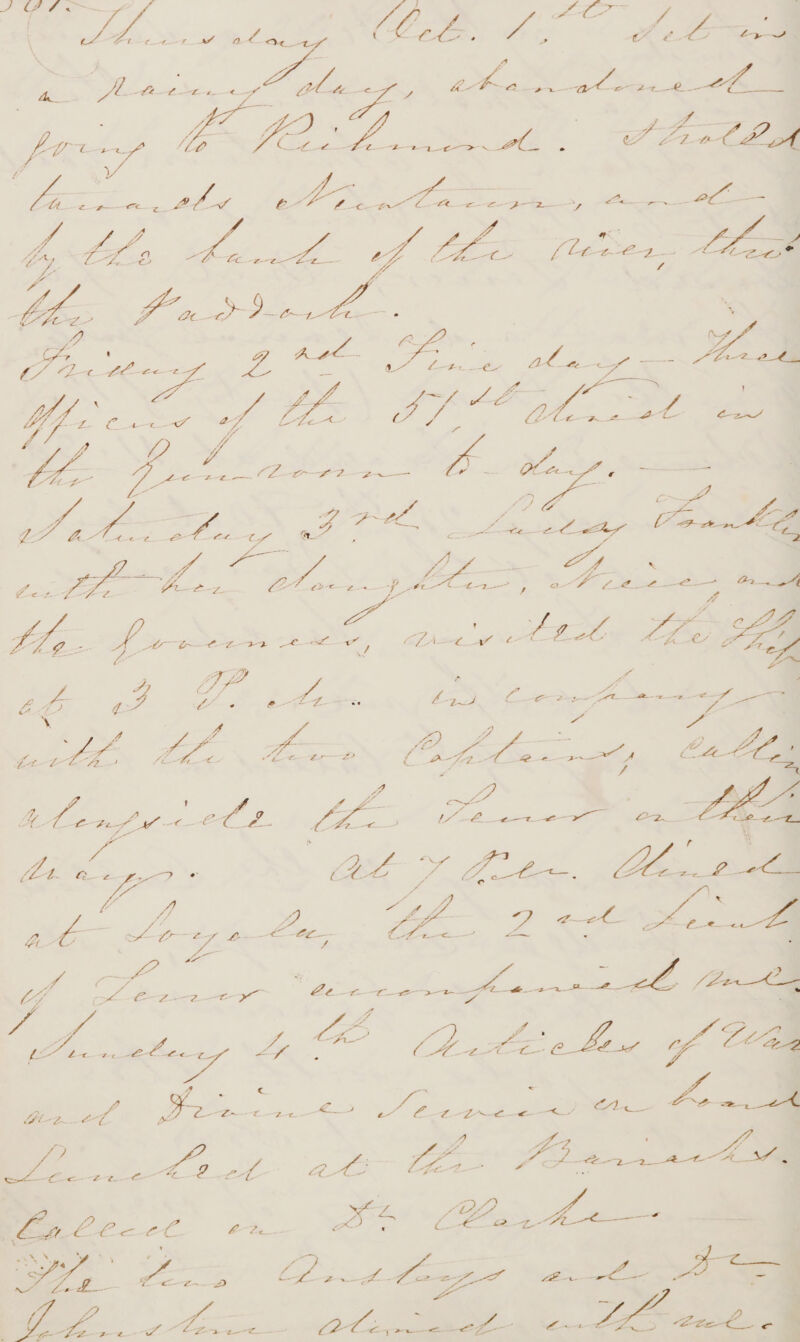 Thursday Oct. 1st. Set in
a rainy day, abandoned
going to Richmond. Strolled
towards Newtown, and
by the bank of the river, thro'
the Paddock.
Friday 2nd Fine day — Three
Officers of the 51st dined in
the Gunroom to-day. —
Saturday 3rd Lady Franklin
with her daughter, Niece and
the Governess, visited the Ship
at 3 P.M. in company
with the two Captains, callin
alongside the Terror on their
way. At 7 P.M. dined
at Loyola, the 2nd Lieut
of Terror accompanied me.
Sunday 4th Articles of War
and Divine Service on board
Lunched at the Barracks.
Called on Dr. Clarke.
The two Ansteys and Dr
Johnstone dined with me.